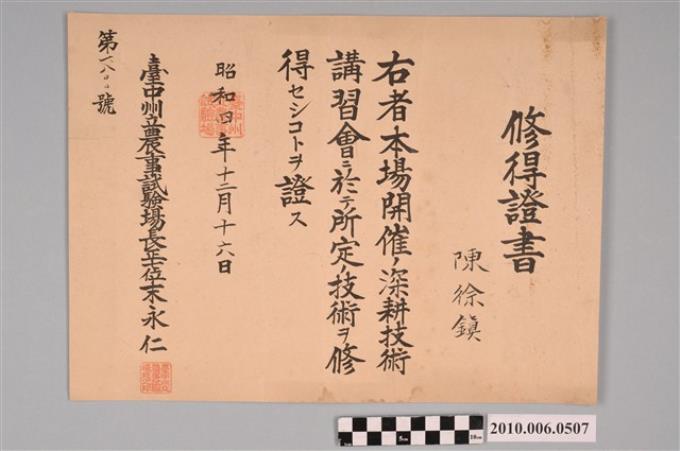 修得證書
陳徐鎮
右者本場開催ノ深耕技術
講習會ニ於テ所定ノ技術ヲ修
得セシコトヲ證ス
昭和四年十二月十六日
臺中州立農事試驗場長正位末永仁
第 號
5cm
10cm
2010.006.0507